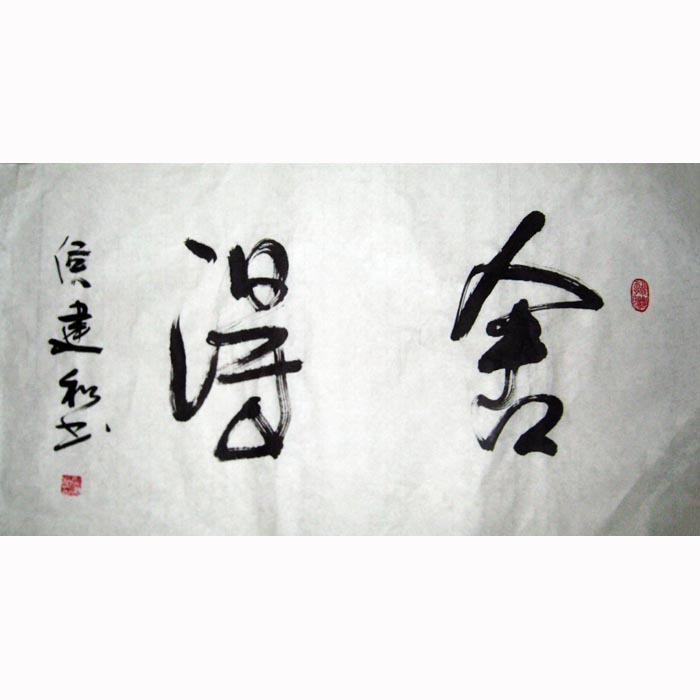 舍得
侯建和书